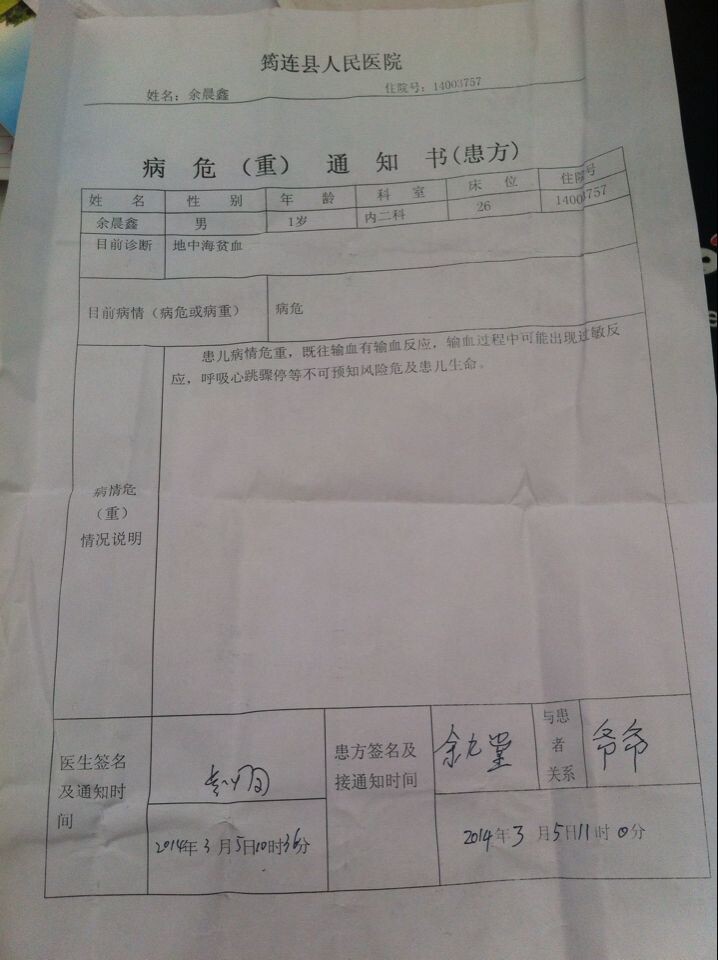 筠连县人民医院
姓名：余晨鑫 住院号：14003757
病危（重）通知书（患方）
姓名 性别 年龄 科室 床位 住院号
余晨鑫 男 1岁 内二科 26 14003757
目前诊断 地中海贫血
目前病情（病危或病重） 病危
患儿病情危重，既往输血有输血反应，输血过程中可能出现过敏反
应，呼吸心跳骤停等不可预知风险危及患儿生命。
病情危
（重）
情况说明
医生签名
及通知时
间
2014年3月5日10时36分
患方签名及
接通知时间
余九堂
与患
者
关系
爷爷
2014年3月5日11时0分